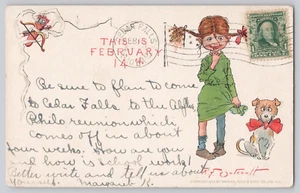 THIS IS
FEBRUARY
14
Be sure to plan to come
to Cedar Falls. to the Alpha
Philo reunion which
comes off in about
four weeks. How are you
and how is school work?
Better write and tell us about
Yours, Margaret K.